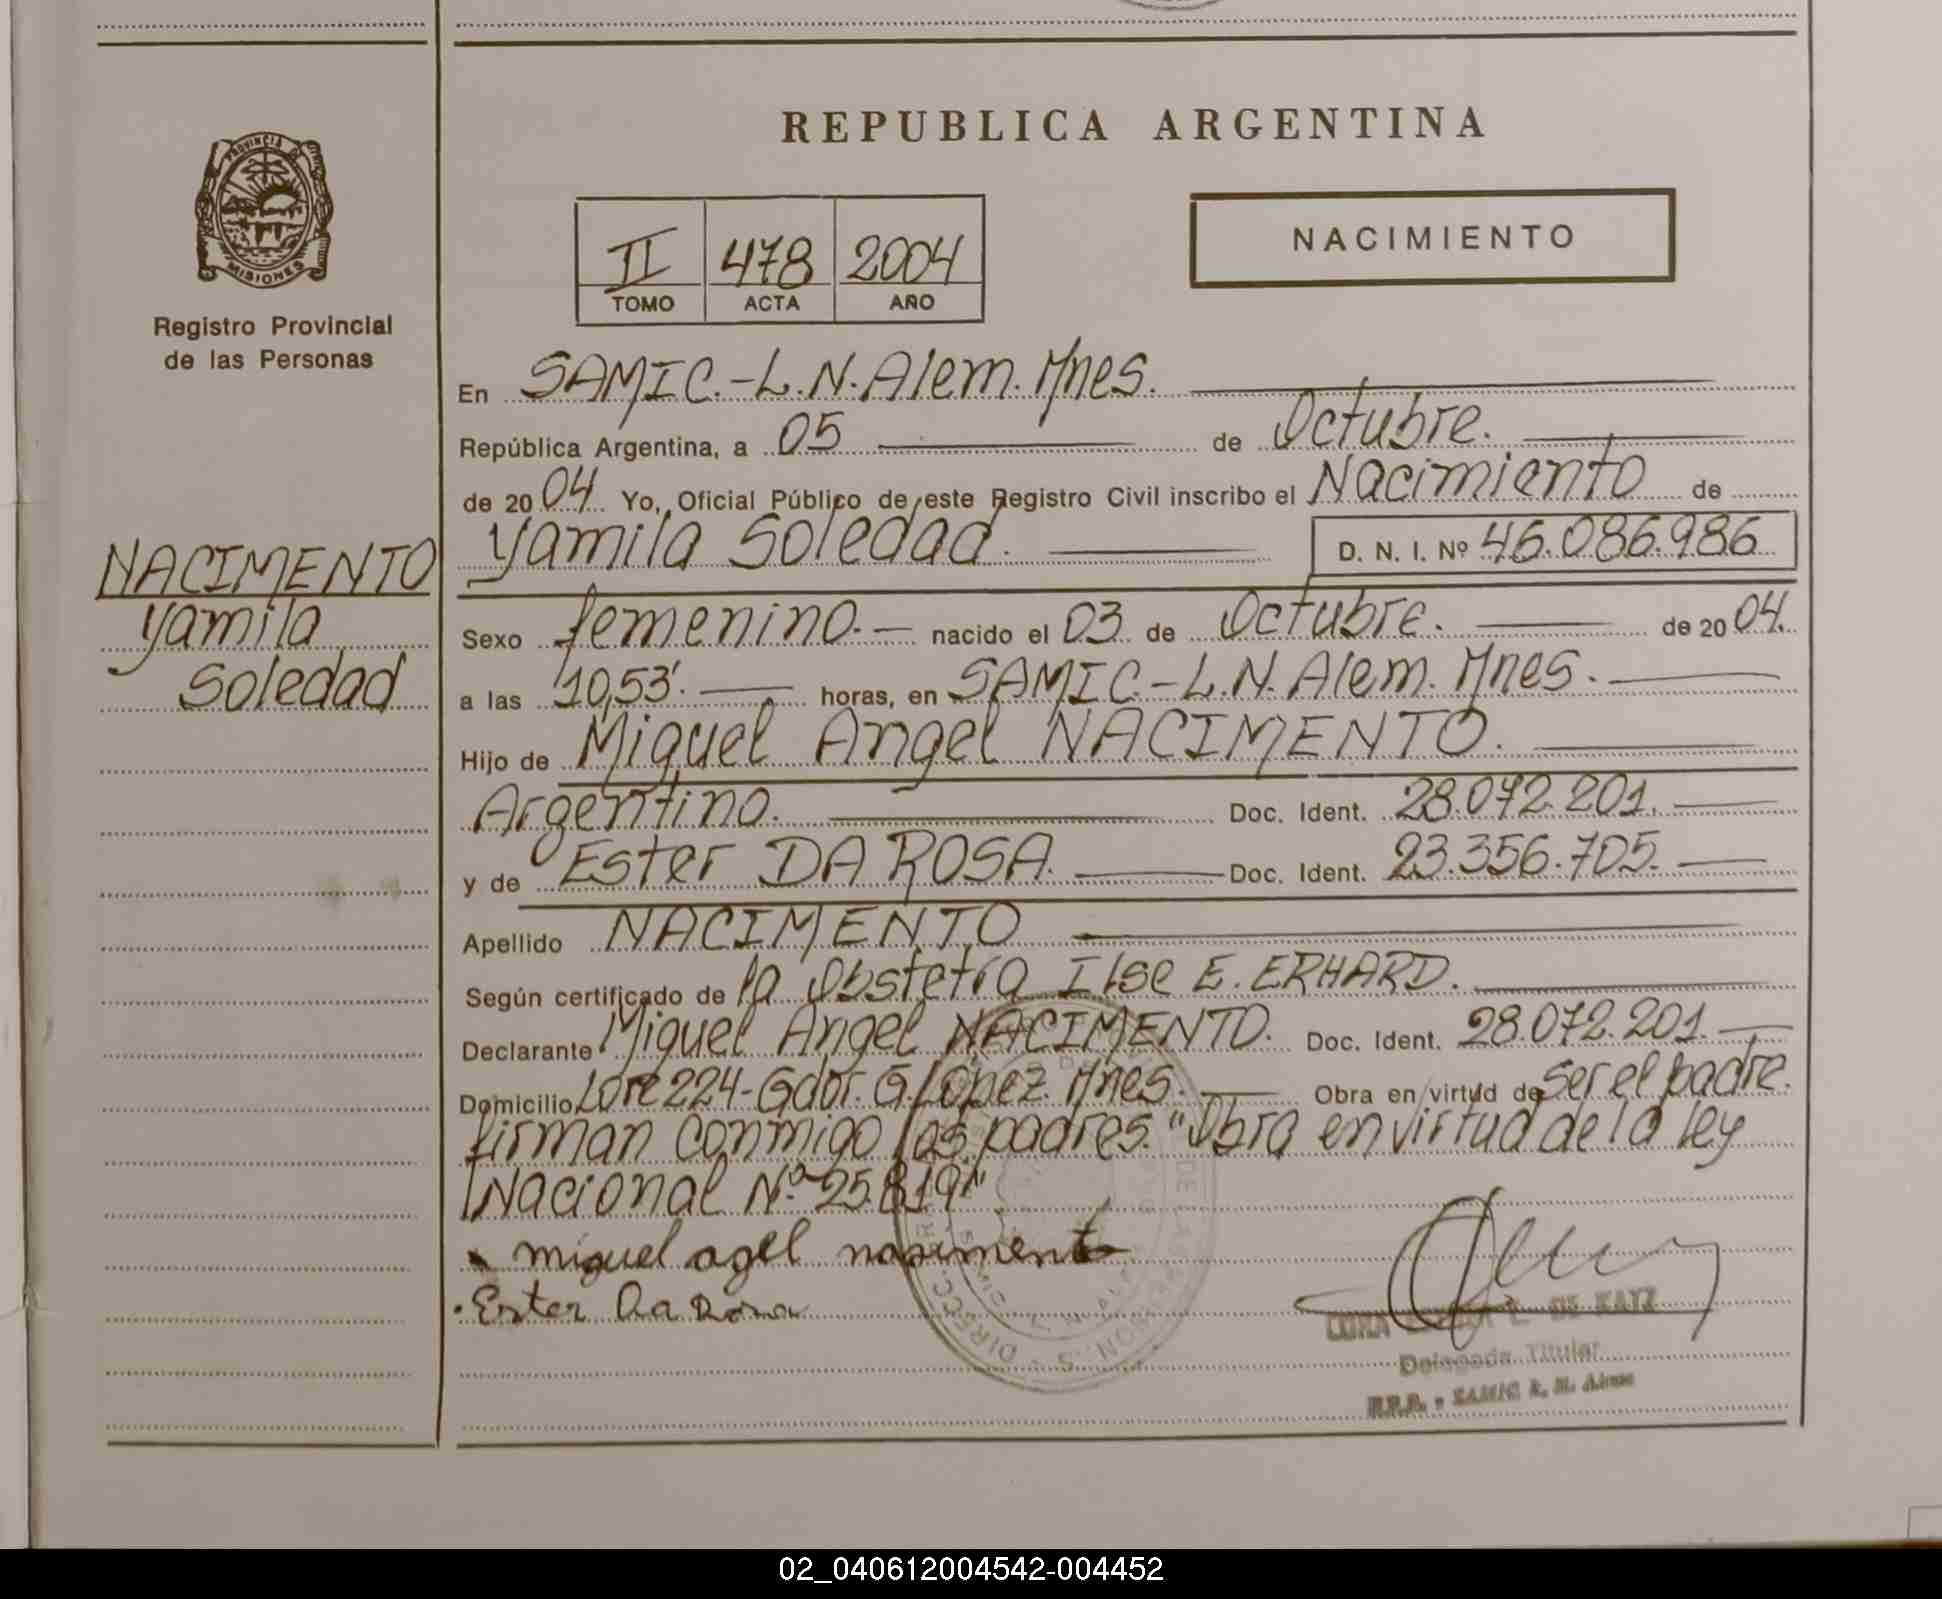 REPUBLICA ARGENTINA
PROVINCIA DE
MISIONES
Registro Provincial
de las Personas
II 478 2004
TOMO ACTA AÑO
NACIMIENTO
NACIMENTO
Yamila
Soledad
En SAMIC.-L.N.Alem.Mnes.
República Argentina, a 05 de Octubre.
de 2004. Yo, Oficial Público de este Registro Civil inscribo el Nacimiento de
Yamila Soledad. D. N. I. Nº 46.086.986
Sexo femenino.- nacido el 03 de Octubre. de 2004.
a las 10,53'. horas, en SAMIC.-L.N.Alem.Mnes.
Hijo de Miguel Angel NACIMENTO.
Argentino. Doc. Ident. 28.072.201.
y de Ester DA ROSA. Doc. Ident. 23.356.705.
Apellido NACIMENTO
Según certificado de la Obstetra Ilse E. ERHARD.
Declarante Miguel Angel NACIMENTO. Doc. Ident. 28.072.201.
Domicilio Lote 224-Gdor. G.Lopez. Mnes. Obra en virtud de ser el padre.
firman conmigo los padres. "Obra en virtud de la ley
Nacional Nº 25.819"
miguel agel nasimento
Ester Da Rosa
DE KATZ
Delegada Titular
R.P.P. - SAMIC L. N. Alem
02_040612004542-004452